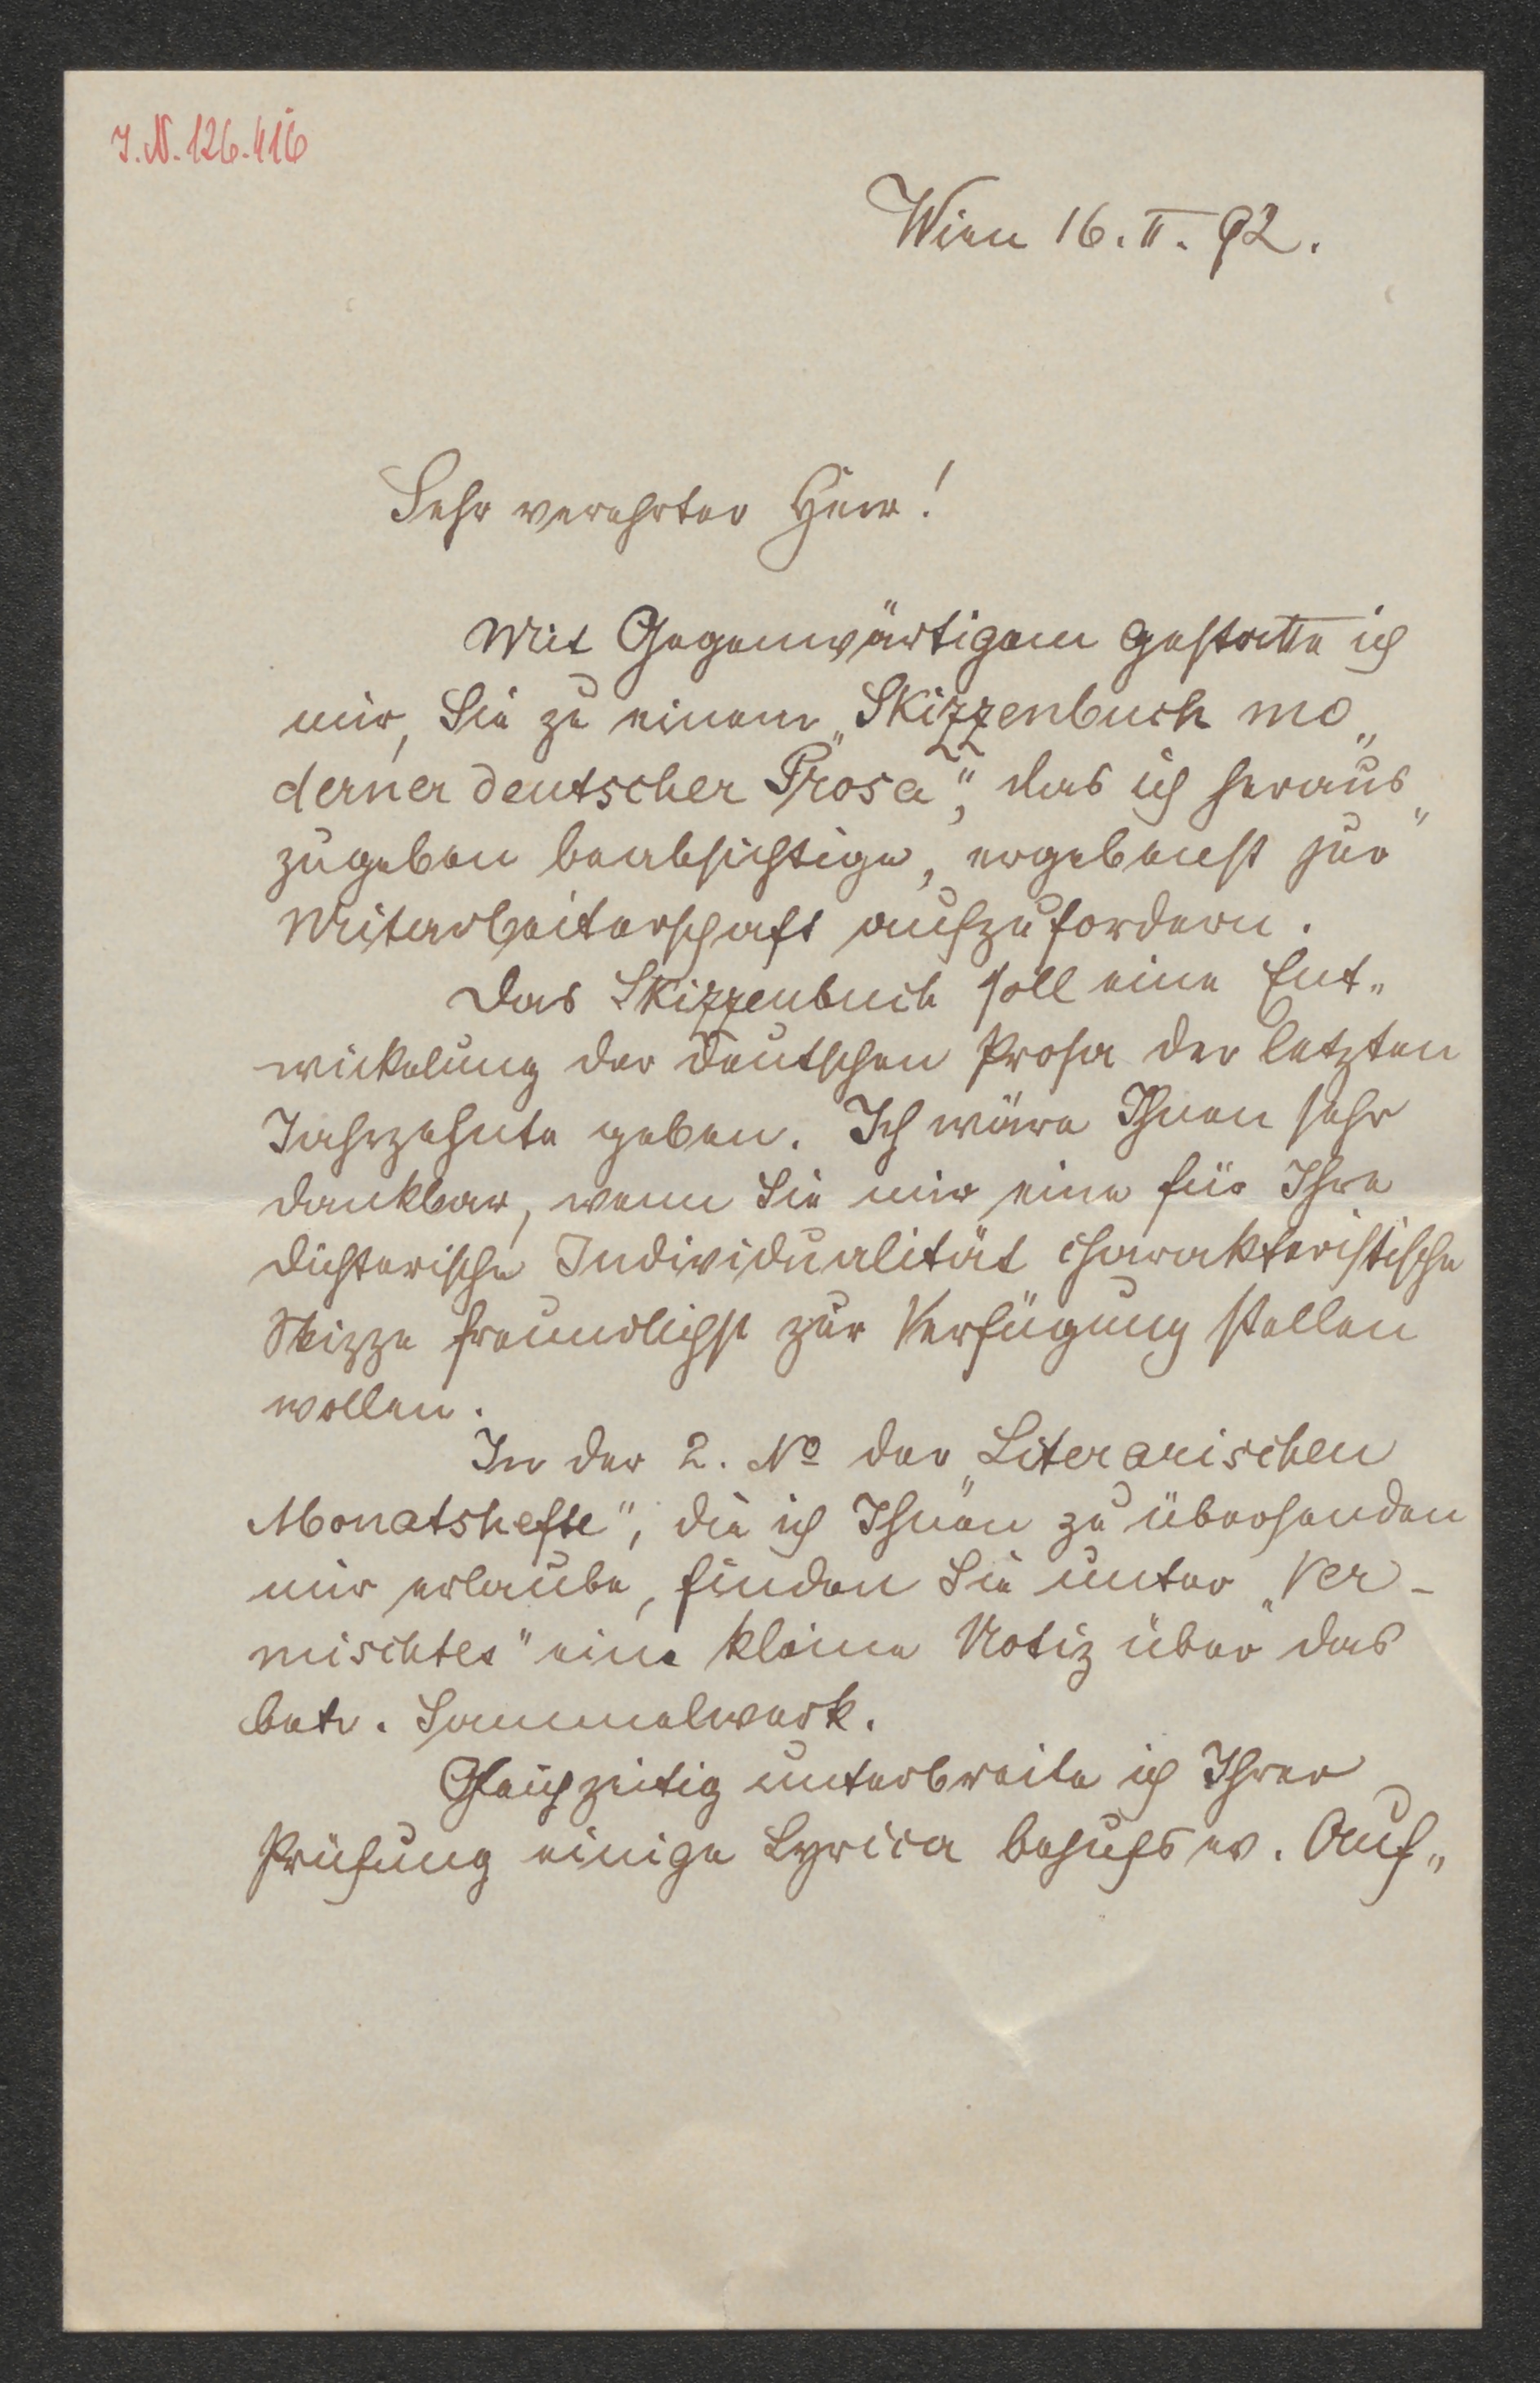 J. N. 126.416
Wien 16. II. 92.
Sehr verehrter Herr!
Mit Gegenwärtigem gestatte ich
mir, Sie zu einem „Skizzenbuch mo„
derner deutscher Prosa“, das ich heraus„
zugeben beabsichtige, ergebenst zur
Mitarbeiterschaft aufzufordern.
Das Skizzenbuch soll eine Ent„
wickelung der deutschen Prosa der letzten
Jahrzehnte geben. Ich wäre Ihnen sehr
dankbar, wenn Sie mir eine für Ihre
dichterische Individualität charakteristische
Skizze freundlichst zur Verfügung stellen
wollen.
In der 2. No der „Literarischen
Monatshefte“, die ich Ihnen zu übersenden
mir erlaube, finden Sie unter „Ver-
mischtes“ eine kleine Notiz über das
betr. Sammelwerk.
Gleichzeitig unterbreite ich Ihrer
Prüfung einige Lyrica behufs ev. Auf„